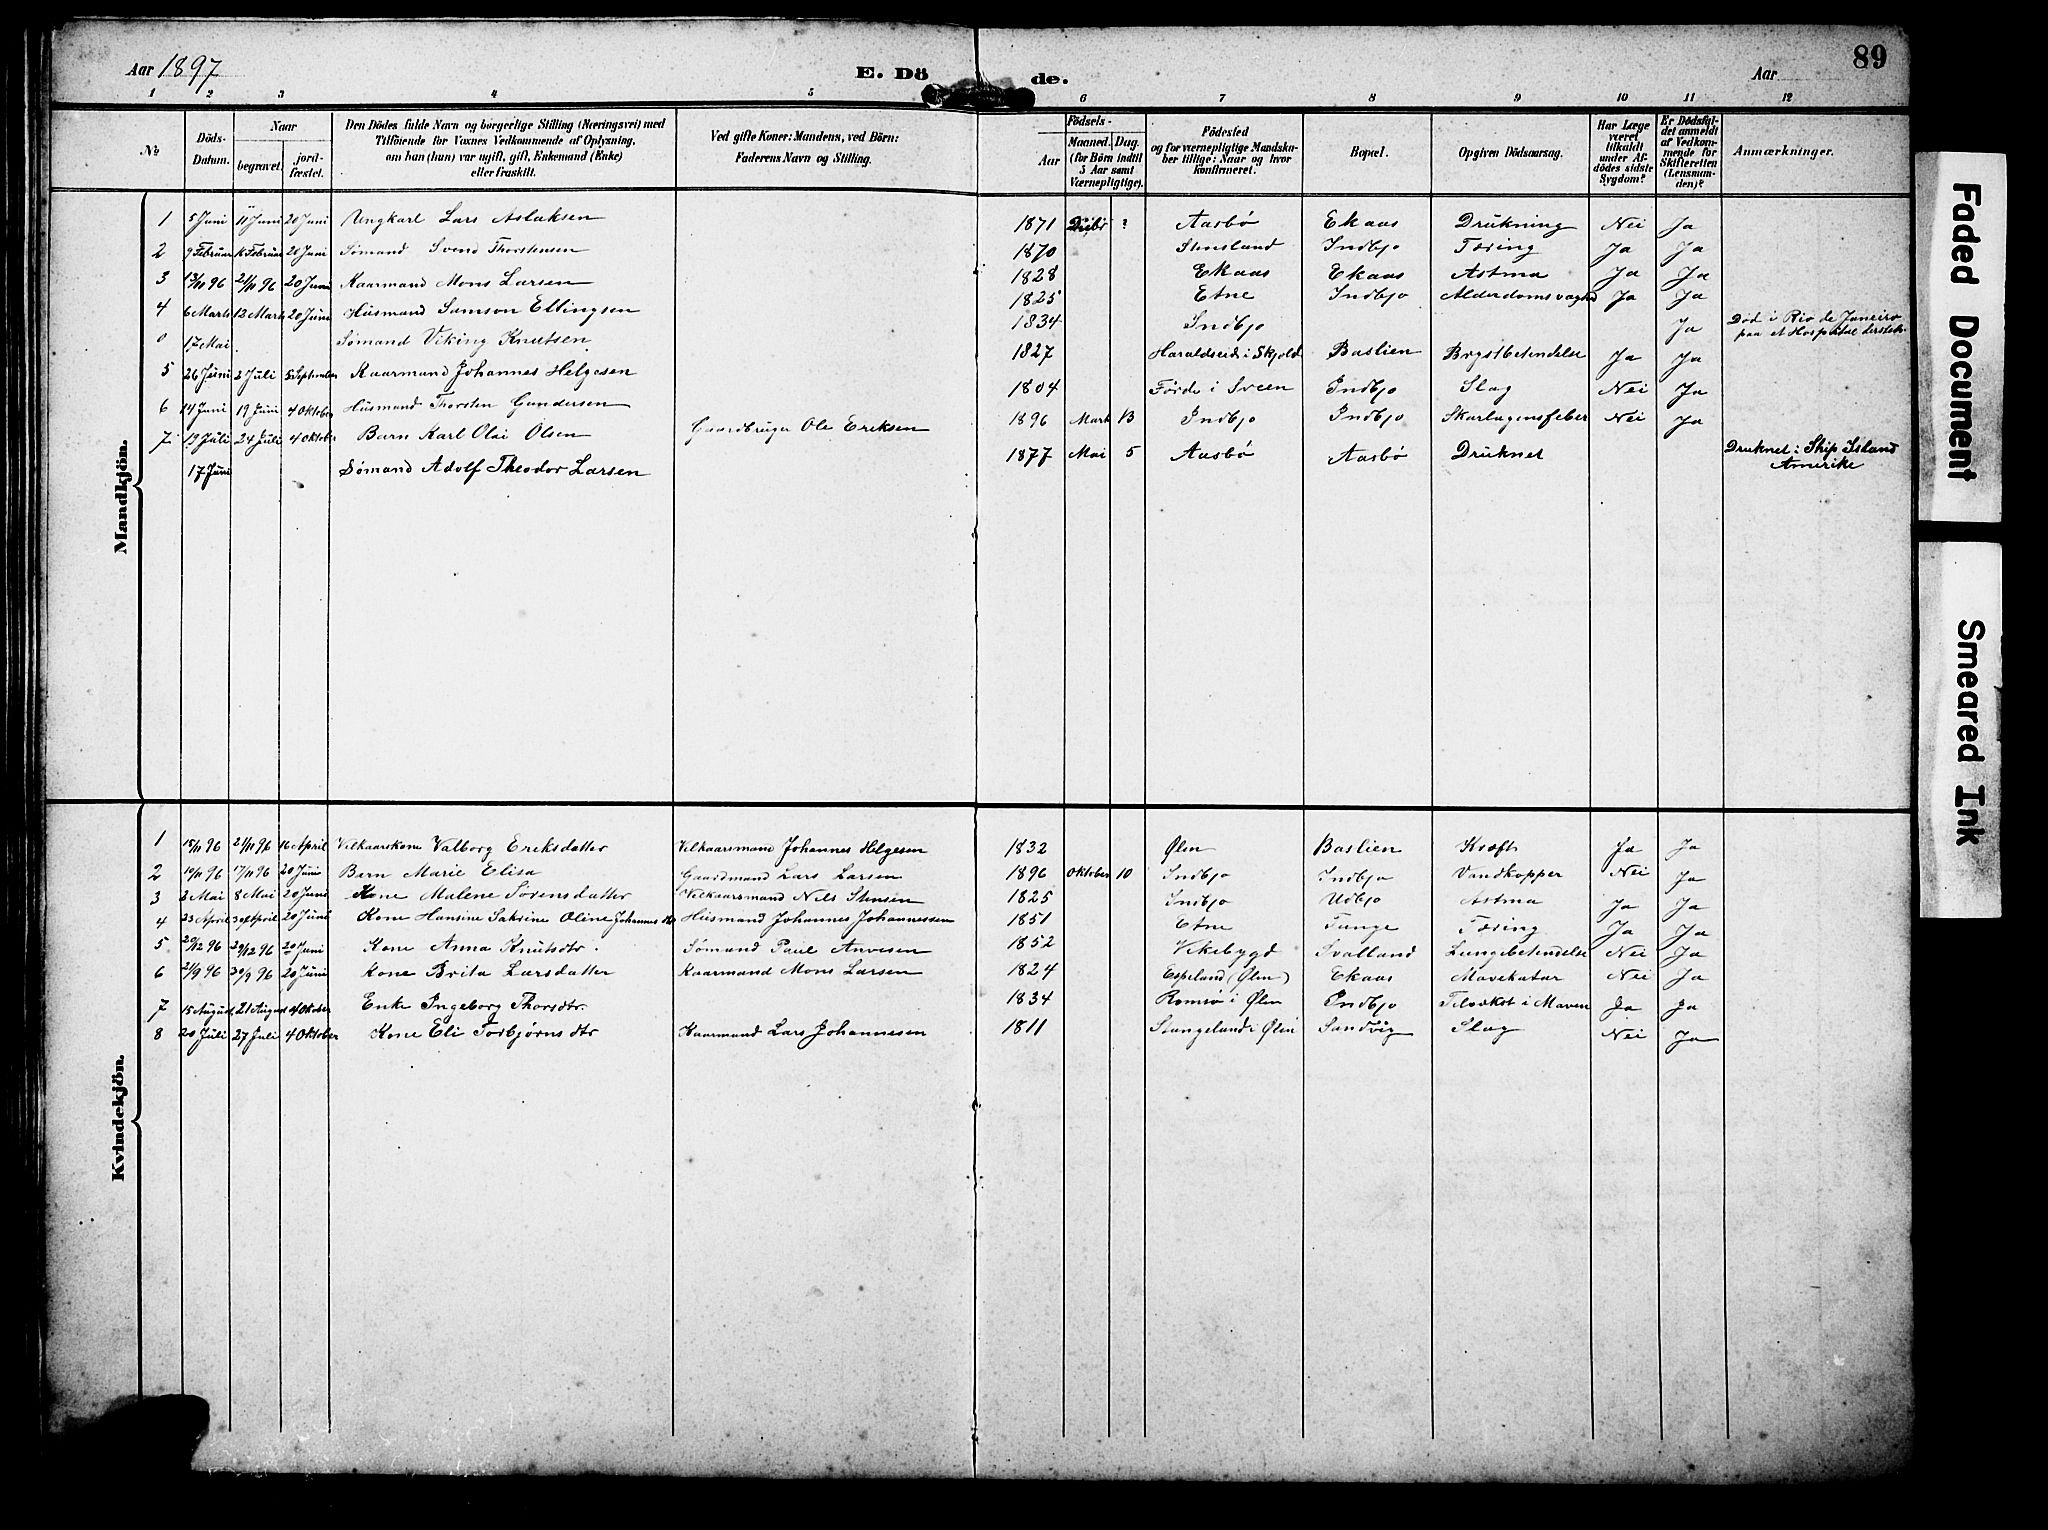 Aar 1897 E. Dö de. Aar 89
1 2 3 4 5 6 7 8 9 10 11 12
№ Döds-Datum. Naar begravet. jordfæstet. Den Dödes fulde Navn og borgerlige Stilling (Næringsvei) med Tilföiende for Voxnes Vedkommende af Oplysning, om han (hun) var ugift, gift, Enkemand (Enke) eller fraskilt. Ved gifte Koner: Mandens, ved Börn: Faderens Navn og Stilling. Födsels- Aar Maaned. Dag. (for Börn indtil 5 Aar samt Værnepligtige). Födested og for værnepligtige Mandskaber tillige: Naar og hvor konfirmeret. Bopæl. Opgiven Dödsaarsag. Har Læge været tilkaldt under Afdödes sidste Sygdom? Er Dödsfaldet anmeldt af Vedkommende for Skifteretten (Lensmanden)? Anmærkninger.
Mandkjön.
1 5 Juni 11 Juni 20 Juni Ungkarl Lars Aslaksen 1871 ? Aasbø Ekaas Drukning Nei Ja
2 9 Februar 16 Februar 20 Juni Sømand Svend Thorstensen 1870 Stensland Indbjo Tæring Ja Ja
3 13/11 96 21/11 96 20 Juni Kaarmand Mons Larsen 1828 Ekaas Ekaas Astma Ja Ja
4 6 Marts 12 Marts 20 Juni Husmand Samson Ellingsen 1825 Etne Indbjo Alderdomsvaghed Ja Ja
0 17 Mai Sømand Viking Knutsen 1834 Indbjo Ja Død i Rio de Janeiro paa et Hospital dersteds
5 26 Juni 3 Juli 5 September Kaarmand Johannes Helgesen 1827 Haraldseid i Skjold Baslien Brystbetendelse Ja Ja
6 14 Juni 19 Juni 4 Oktober Husmand Thorsten Gundersen 1804 Førde i Sveen Indbjo Slag Nei Ja
7 19 Juli 24 Juli 4 Oktober Barn Karl Olai Olsen Gaardbruger Ole Eriksen 1896 Marts 13 Indbjo Indbjo Skarlagensfeber Nei Ja
17 Juni Sømand Adolf Theodor Larsen 1877 Mai 5 Aasbø Aasbø Druknet Druknet i Ship Island Amerike
Kvindekjön.
1 15/11 96 21/11 96 16 April Vilkaarskone Valborg Eriksdatter Vilkaarsmand Johannes Helgesen 1832 Ølen Baslien Kræft Ja Ja
2 10/11 96 17/11 96 20 Juni Barn Marie Elisa Gaardmand Lars Larsen 1896 Oktober 10 Indbjo Indbjo Vandkopper Nei Ja
3 3 Mai 8 Mai 20 Juni Kone Malene Sørensdatter Vilkaarsmand Nils Stensen 1825 Indbjo Udbjo Astma Ja Ja
4 23 April 30 April 20 Juni Kone Hansine Sakrine Oline Johannesdtr Husmand Johannes Johannessen 1851 Etne Tunge Tæring Ja Ja
5 20/12 96 29/12 96 20 Juni Kone Anna Knutsdtr. Sømand Paul Anvesen 1852 Vikebygd Svolland Lungebetendelse Nei Ja
6 21/9 96 30/9 96 20 Juni Kone Brita Larsdatter Kaarmand Mons Larsen 1824 Espeland (Ølen) Ekaas Mavekatar Nei Ja
7 15 August 21 August 4 Oktober Enke Ingeborg Thorsdtr. 1834 Romsø i Ølen Indbjo Tilvækst i Maven Ja Ja
8 20 Juli 27 Juli 4 Oktober Kone Eli Torbjørnsdtr Kaarmand Lars Johannesen 1811 Stangeland i Ølen Sandvig Slag Nei Ja
Faded Document
Smeared Ink